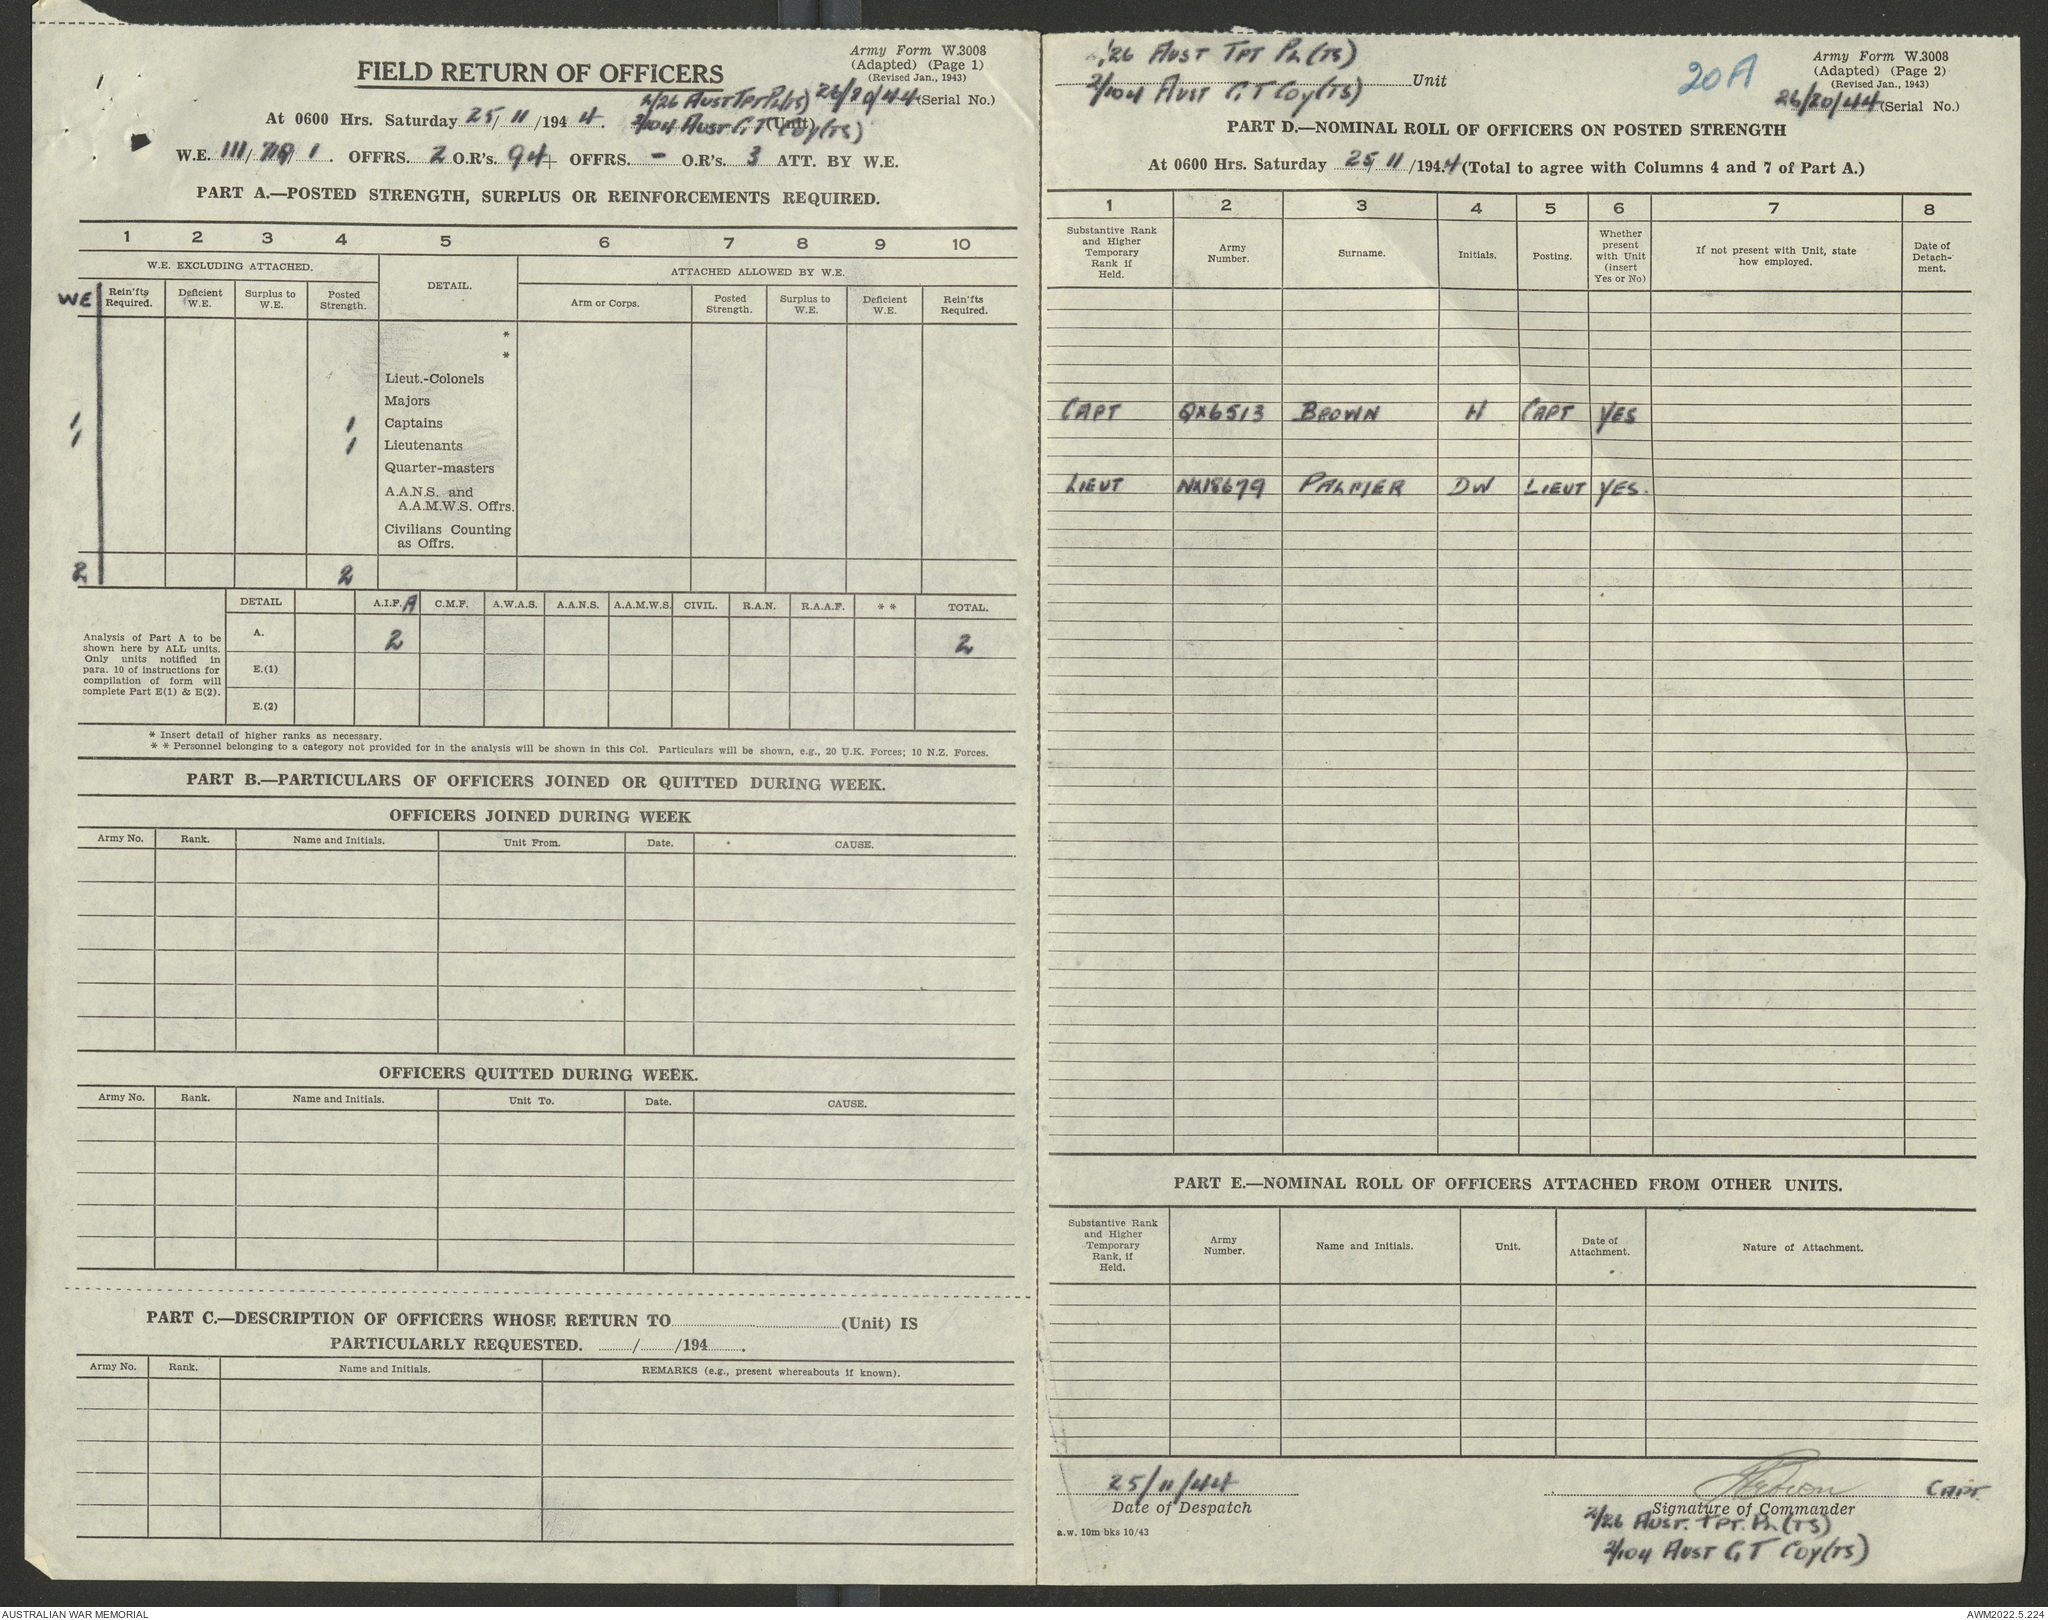 Army Form W.3008
(Adapted) (Page 1)
(Revised Jan., 1943)
FIELD RETURN OF OFFICERS
2/26 AUST TPT PL(TS) 26/20/44 (Serial No.)
At 0600 Hrs. Saturday 25/11/1944. 2/104 AUST G T COY(TS) (Unit)
W.E. III/ 1. OFFRS. 2 O.R's. 94 OFFRS. - O.R's. 3 ATT. BY W.E.
PART A.—POSTED STRENGTH, SURPLUS OR REINFORCEMENTS REQUIRED.
1 2 3 4 5 6 7 8 9 10
W.E. EXCLUDING ATTACHED. DETAIL. ATTACHED ALLOWED BY W.E.
WE Rein'fts Required. Deficient W.E. Surplus to W.E. Posted Strength. Arm or Corps. Posted Strength. Surplus to W.E. Deficient W.E. Rein'fts Required.
*
*
Lieut.-Colonels
Majors
1 1 Captains
1 1 Lieutenants
Quarter-masters
A.A.N.S. and
A.A.M.W.S. Offrs.
Civilians Counting
as Offrs.
2 2
DETAIL A.I.F. A C.M.F. A.W.A.S. A.A.N.S. A.A.M.W.S. CIVIL. R.A.N. R.A.A.F. * * TOTAL.
Analysis of Part A to be
shown here by ALL units.
Only units notified in
para. 10 of instructions for
compilation of form will
complete Part E(1) & E(2).
A. 2 2
E.(1)
E.(2)
* Insert detail of higher ranks as necessary.
* * Personnel belonging to a category not provided for in the analysis will be shown in this Col. Particulars will be shown, e.g., 20 U.K. Forces; 10 N.Z. Forces.
PART B.—PARTICULARS OF OFFICERS JOINED OR QUITTED DURING WEEK.
OFFICERS JOINED DURING WEEK
Army No. Rank. Name and Initials. Unit From. Date. CAUSE.
OFFICERS QUITTED DURING WEEK.
Army No. Rank. Name and Initials. Unit To. Date. CAUSE.
PART C.—DESCRIPTION OF OFFICERS WHOSE RETURN TO (Unit) IS
PARTICULARLY REQUESTED. / /194 .
Army No. Rank. Name and Initials. REMARKS (e.g., present whereabouts if known).
/26 AUST TPT PL(TS)
2/104 AUST G T COY(TS) Unit
20A
Army Form W.3008
(Adapted) (Page 2)
(Revised Jan., 1943)
26/20/44 (Serial No.)
PART D.—NOMINAL ROLL OF OFFICERS ON POSTED STRENGTH
At 0600 Hrs. Saturday 25/11/1944 (Total to agree with Columns 4 and 7 of Part A.)
1 2 3 4 5 6 7 8
Substantive Rank and Higher Temporary Rank if Held. Army Number. Surname. Initials. Posting. Whether present with Unit (insert Yes or No) If not present with Unit, state how employed. Date of Detach-ment.
CAPT QX6513 BROWN H CAPT YES
LIEUT NX18679 PALMER DW LIEUT YES.
PART E.—NOMINAL ROLL OF OFFICERS ATTACHED FROM OTHER UNITS.
Substantive Rank and Higher Temporary Rank, if Held. Army Number. Name and Initials. Unit. Date of Attachment. Nature of Attachment.
25/11/44
Date of Despatch
CAPT.
Signature of Commander
2/26 AUST. TPT. PL (TS)
2/104 AUST G T COY(TS)
a.w. 10m bks 10/43
AUSTRALIAN WAR MEMORIAL
AWM2022.5.224